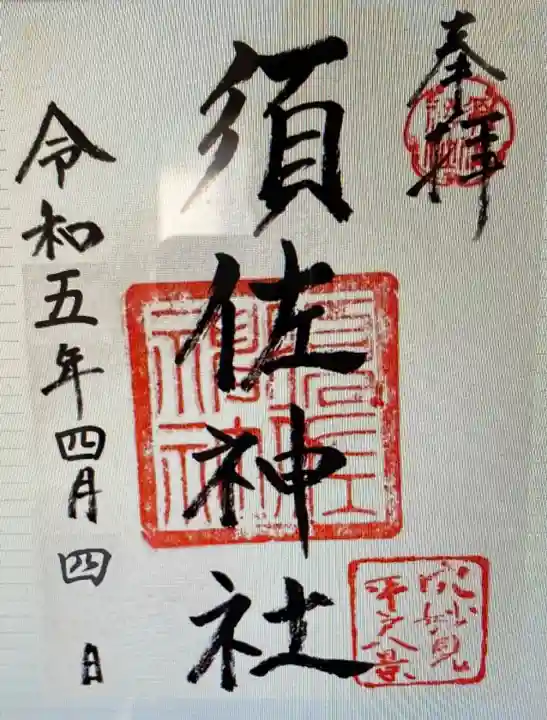 奉拝
須佐神社
令和五年四月四日
平戸八景